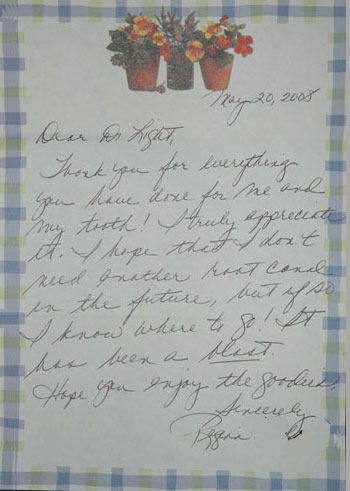 May 20, 2008
Dear Dr Light,
Thank you for everything
you have done for me and
my tooth! I truly appreciate
it. I hope that I don't
need another root canal
in the future, but if so
I know where to go! It
has been a blast.
Hope you enjoy the goodies.
Sincerely
Regina